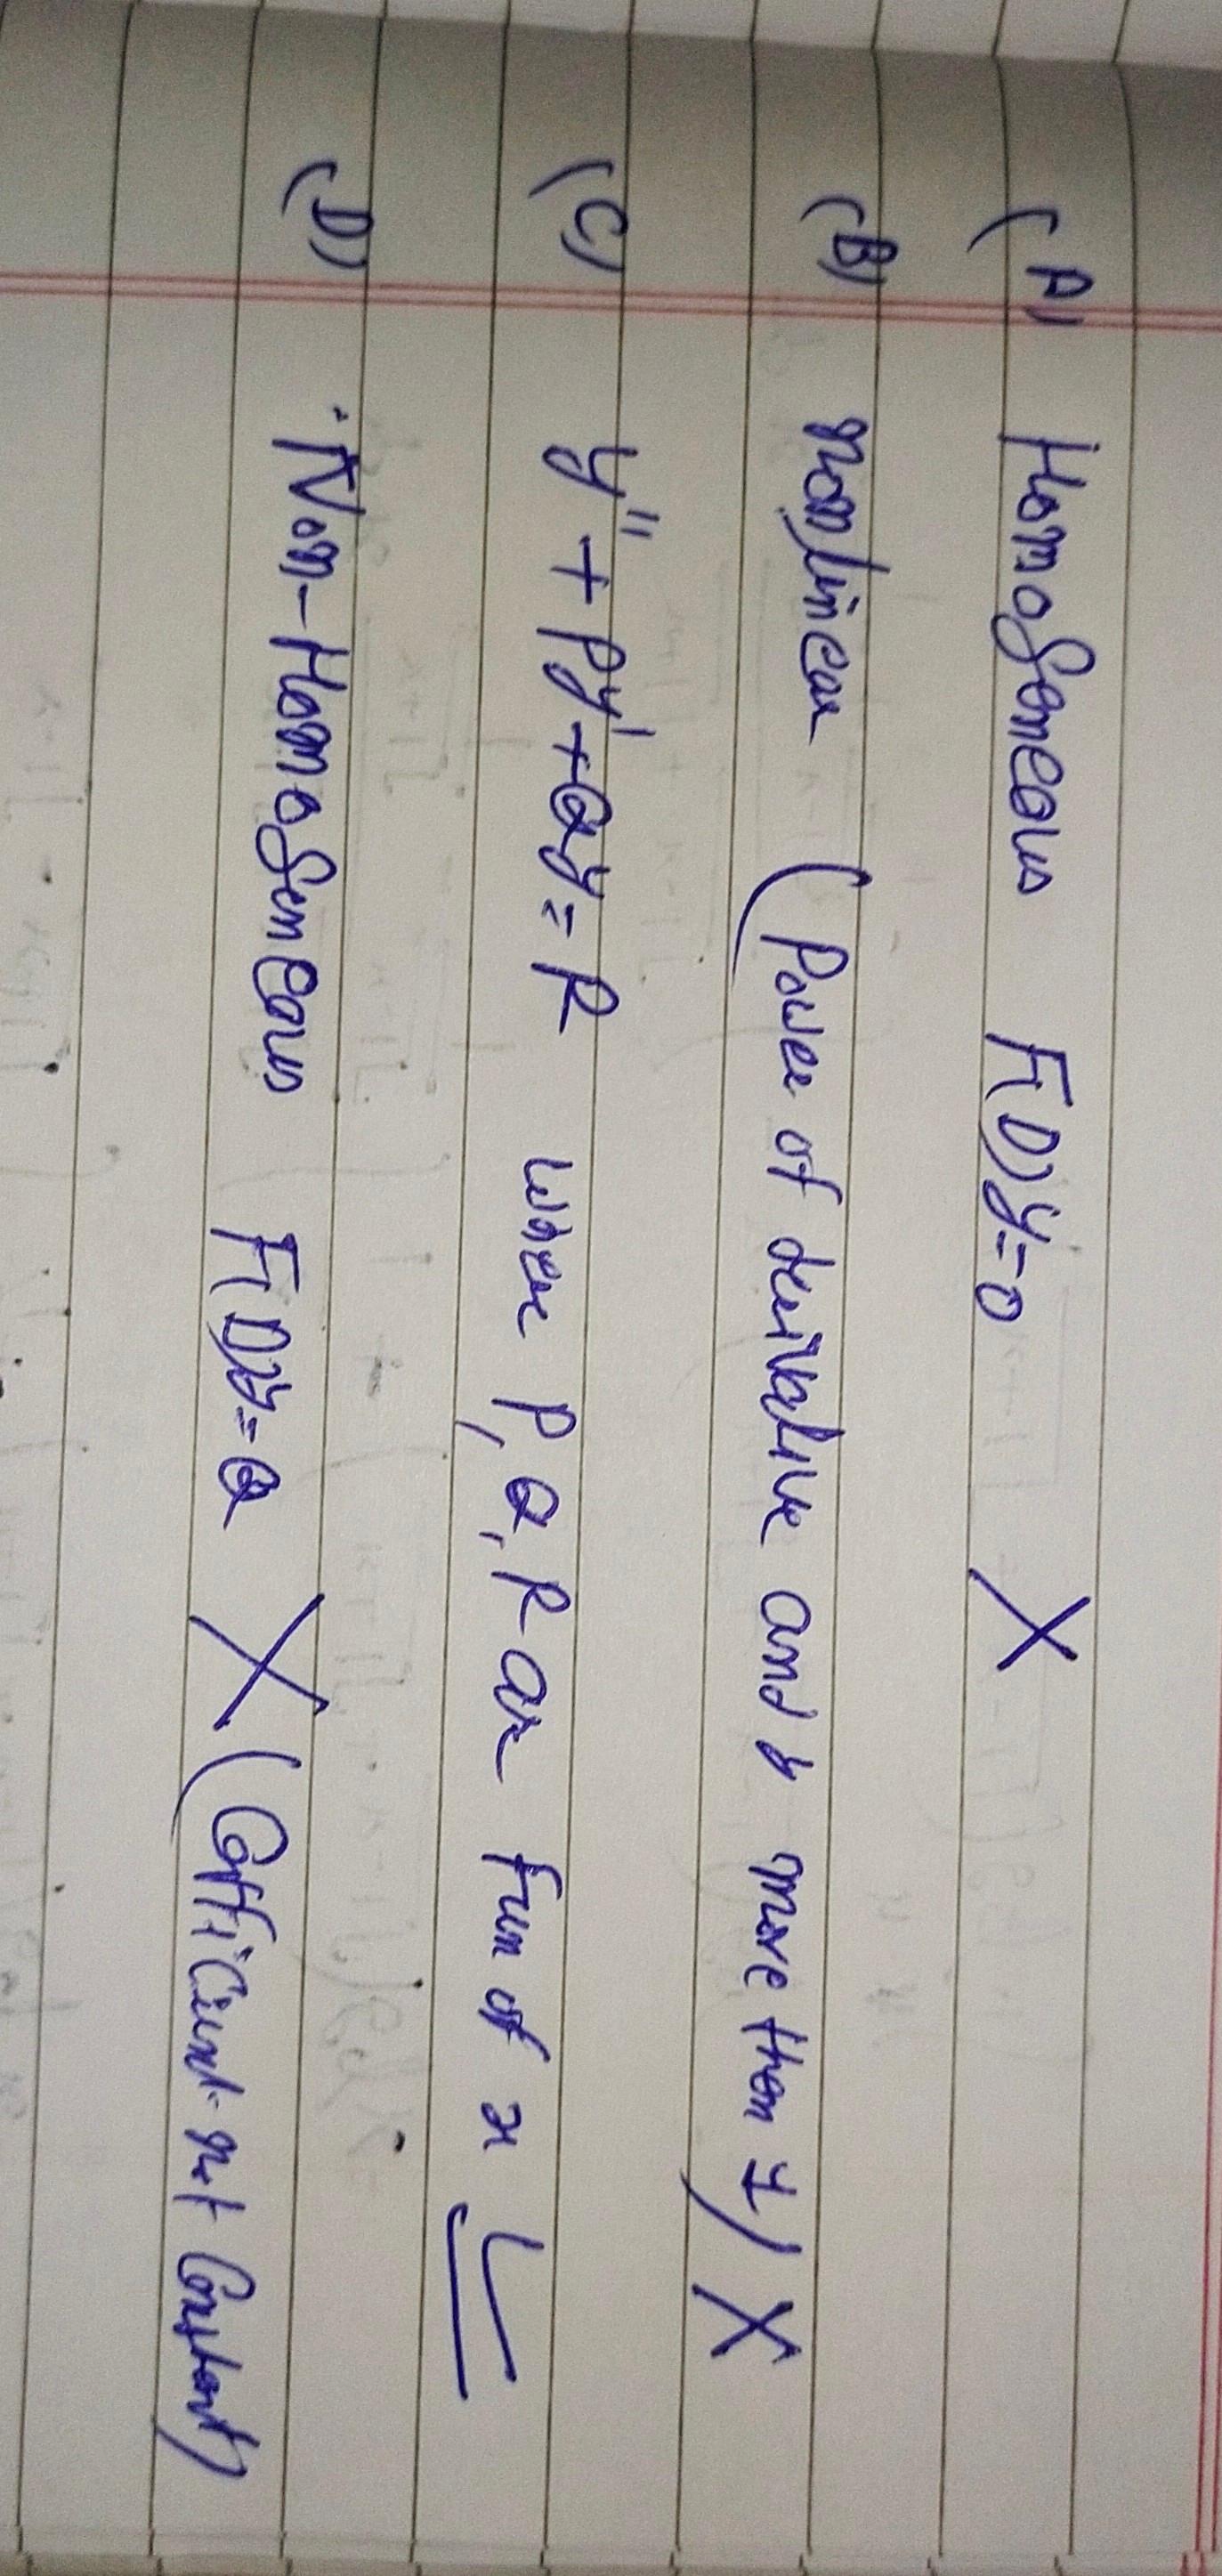 (A) Homogeneous F(D)y=0 X
(B) nonlinear (Power of derivative and y more than 1) X
(C) y'' + Py' + Qy = R where P, Q, R are fun of x
(D) Non-Homogeneous F(D)y=Q X (Cofficient not Constant)